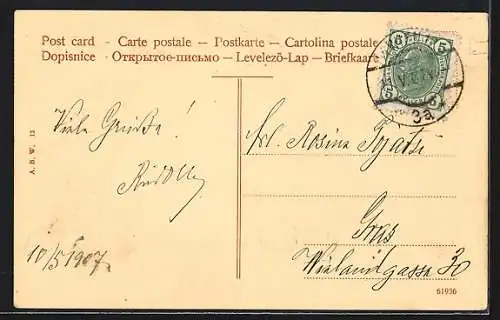 Post card - Carte postale — Postkarte — Cartolina postale
Dopisnice · Открытое-письмо — Levelező-Lap — Briefkaare
5 5
5
3a
A. B. W. 13
Viele Grüße!
10/5 1907
Frl. Rosina
Graz
Wielandgasse 30
61936